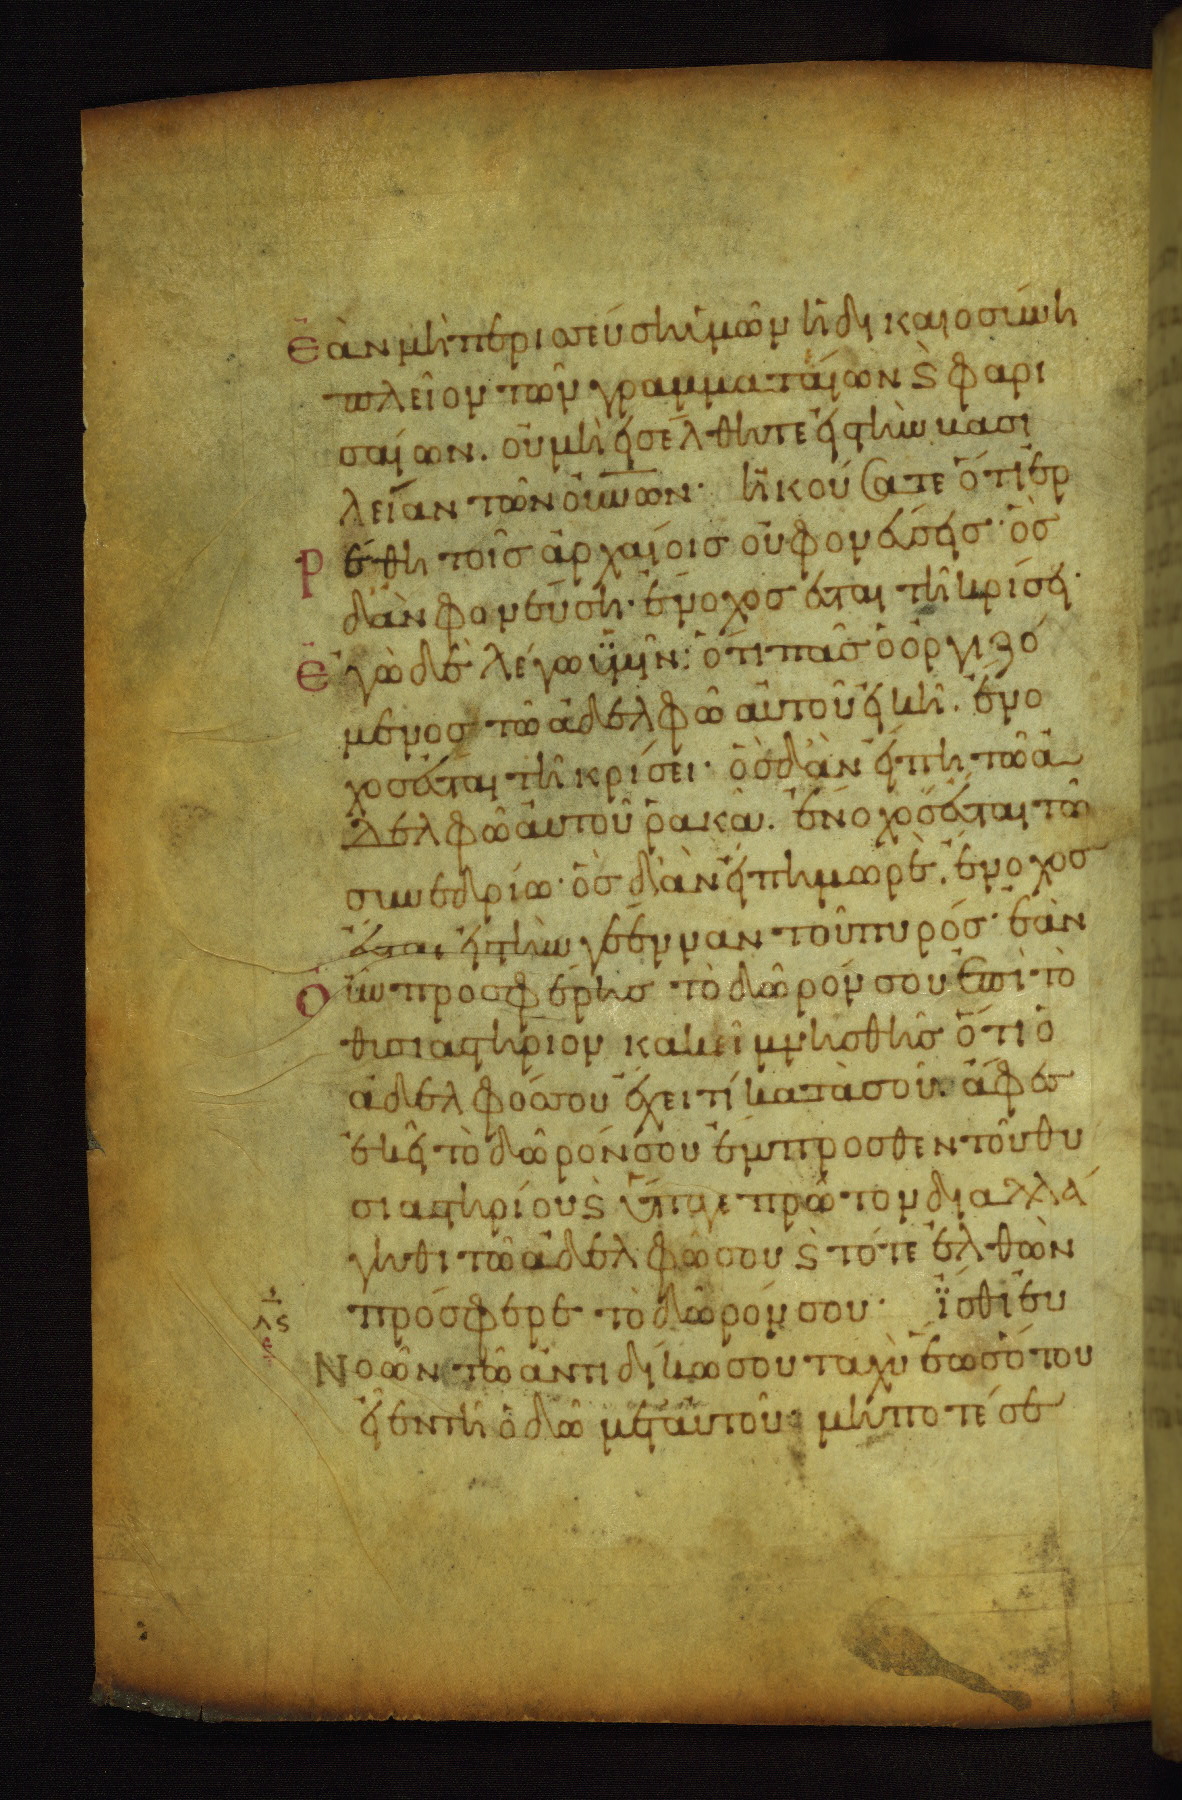 ἐὰν μὴ περισσεύση ὑμῶν ἡ δικαιοσύνη
πλεῖον τῶν γραμματαίων ϗ φαρι
σαίων. οὐ μὴ εἰσέλθητε εἰς τὴν βασι
λείαν τῶν οὐνῶν· ἠκούσατε ὅτι ἐρ
ρέθη τοῖς ἀρχαίοις οὐ φονεύσεις· ὃς
δ' ἂν φονεύση· ἔνοχος ἔσται τῆ κρίσει·
ἐγὼ δὲ λέγω ὑμῖν: ὅτι πᾶς ὁ ὀργιζό
μενος τῶ ἀδελφῶ αὐτοῦ εἰκῆ. ἔνο
χος ἔσται τῆ κρίσει· ὃς δ' ἂν εἴπη τῶ ἀ
δελφῶ αὐτοῦ ῥακά. ἔνοχος ἔσται τῶ
συνεδρίω· ὃς δ' ἂν εἴπη μωρὲ. ἔνοχος
ἔσται εἰς τὴν γέενναν τοῦ πυρός· ἐὰν
οὖν προσφέρης τὸ δῶρόν σου ἐπὶ τὸ
θυσιαστήριον κακεῖ μνησθῆς ὅτι ὁ
ἀδελφός σου ἔχει τί κατὰ σοῦ. ἄφες
ἐκεῖ τὸ δῶρόν σου ἔμπροσθεν τοῦ θυ
σιαστηρίου ϗ ὕπαγε πρῶτον διαλλά
γηθι τῶ ἀδελφῶ σου ϗ τότε ἐλθὼν
πρόσφερε τὸ δῶρόν σου· ἴσθι εὐ
νοῶν τῶ ἀντιδίκω σου ταχὺ ἕως ὅτου
εἶ ἐν τῆ ὁδῶ μετ' αὐτοῦ· μήποτέ σε